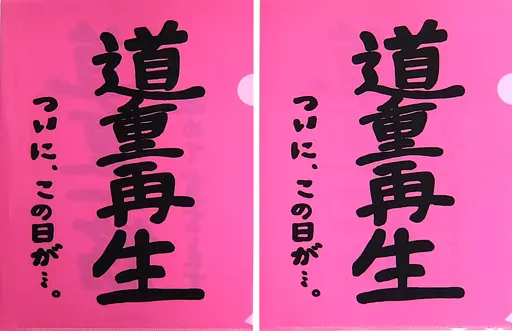 道重再生
ついに、この日が…。
道重再生
ついに、この日が…。